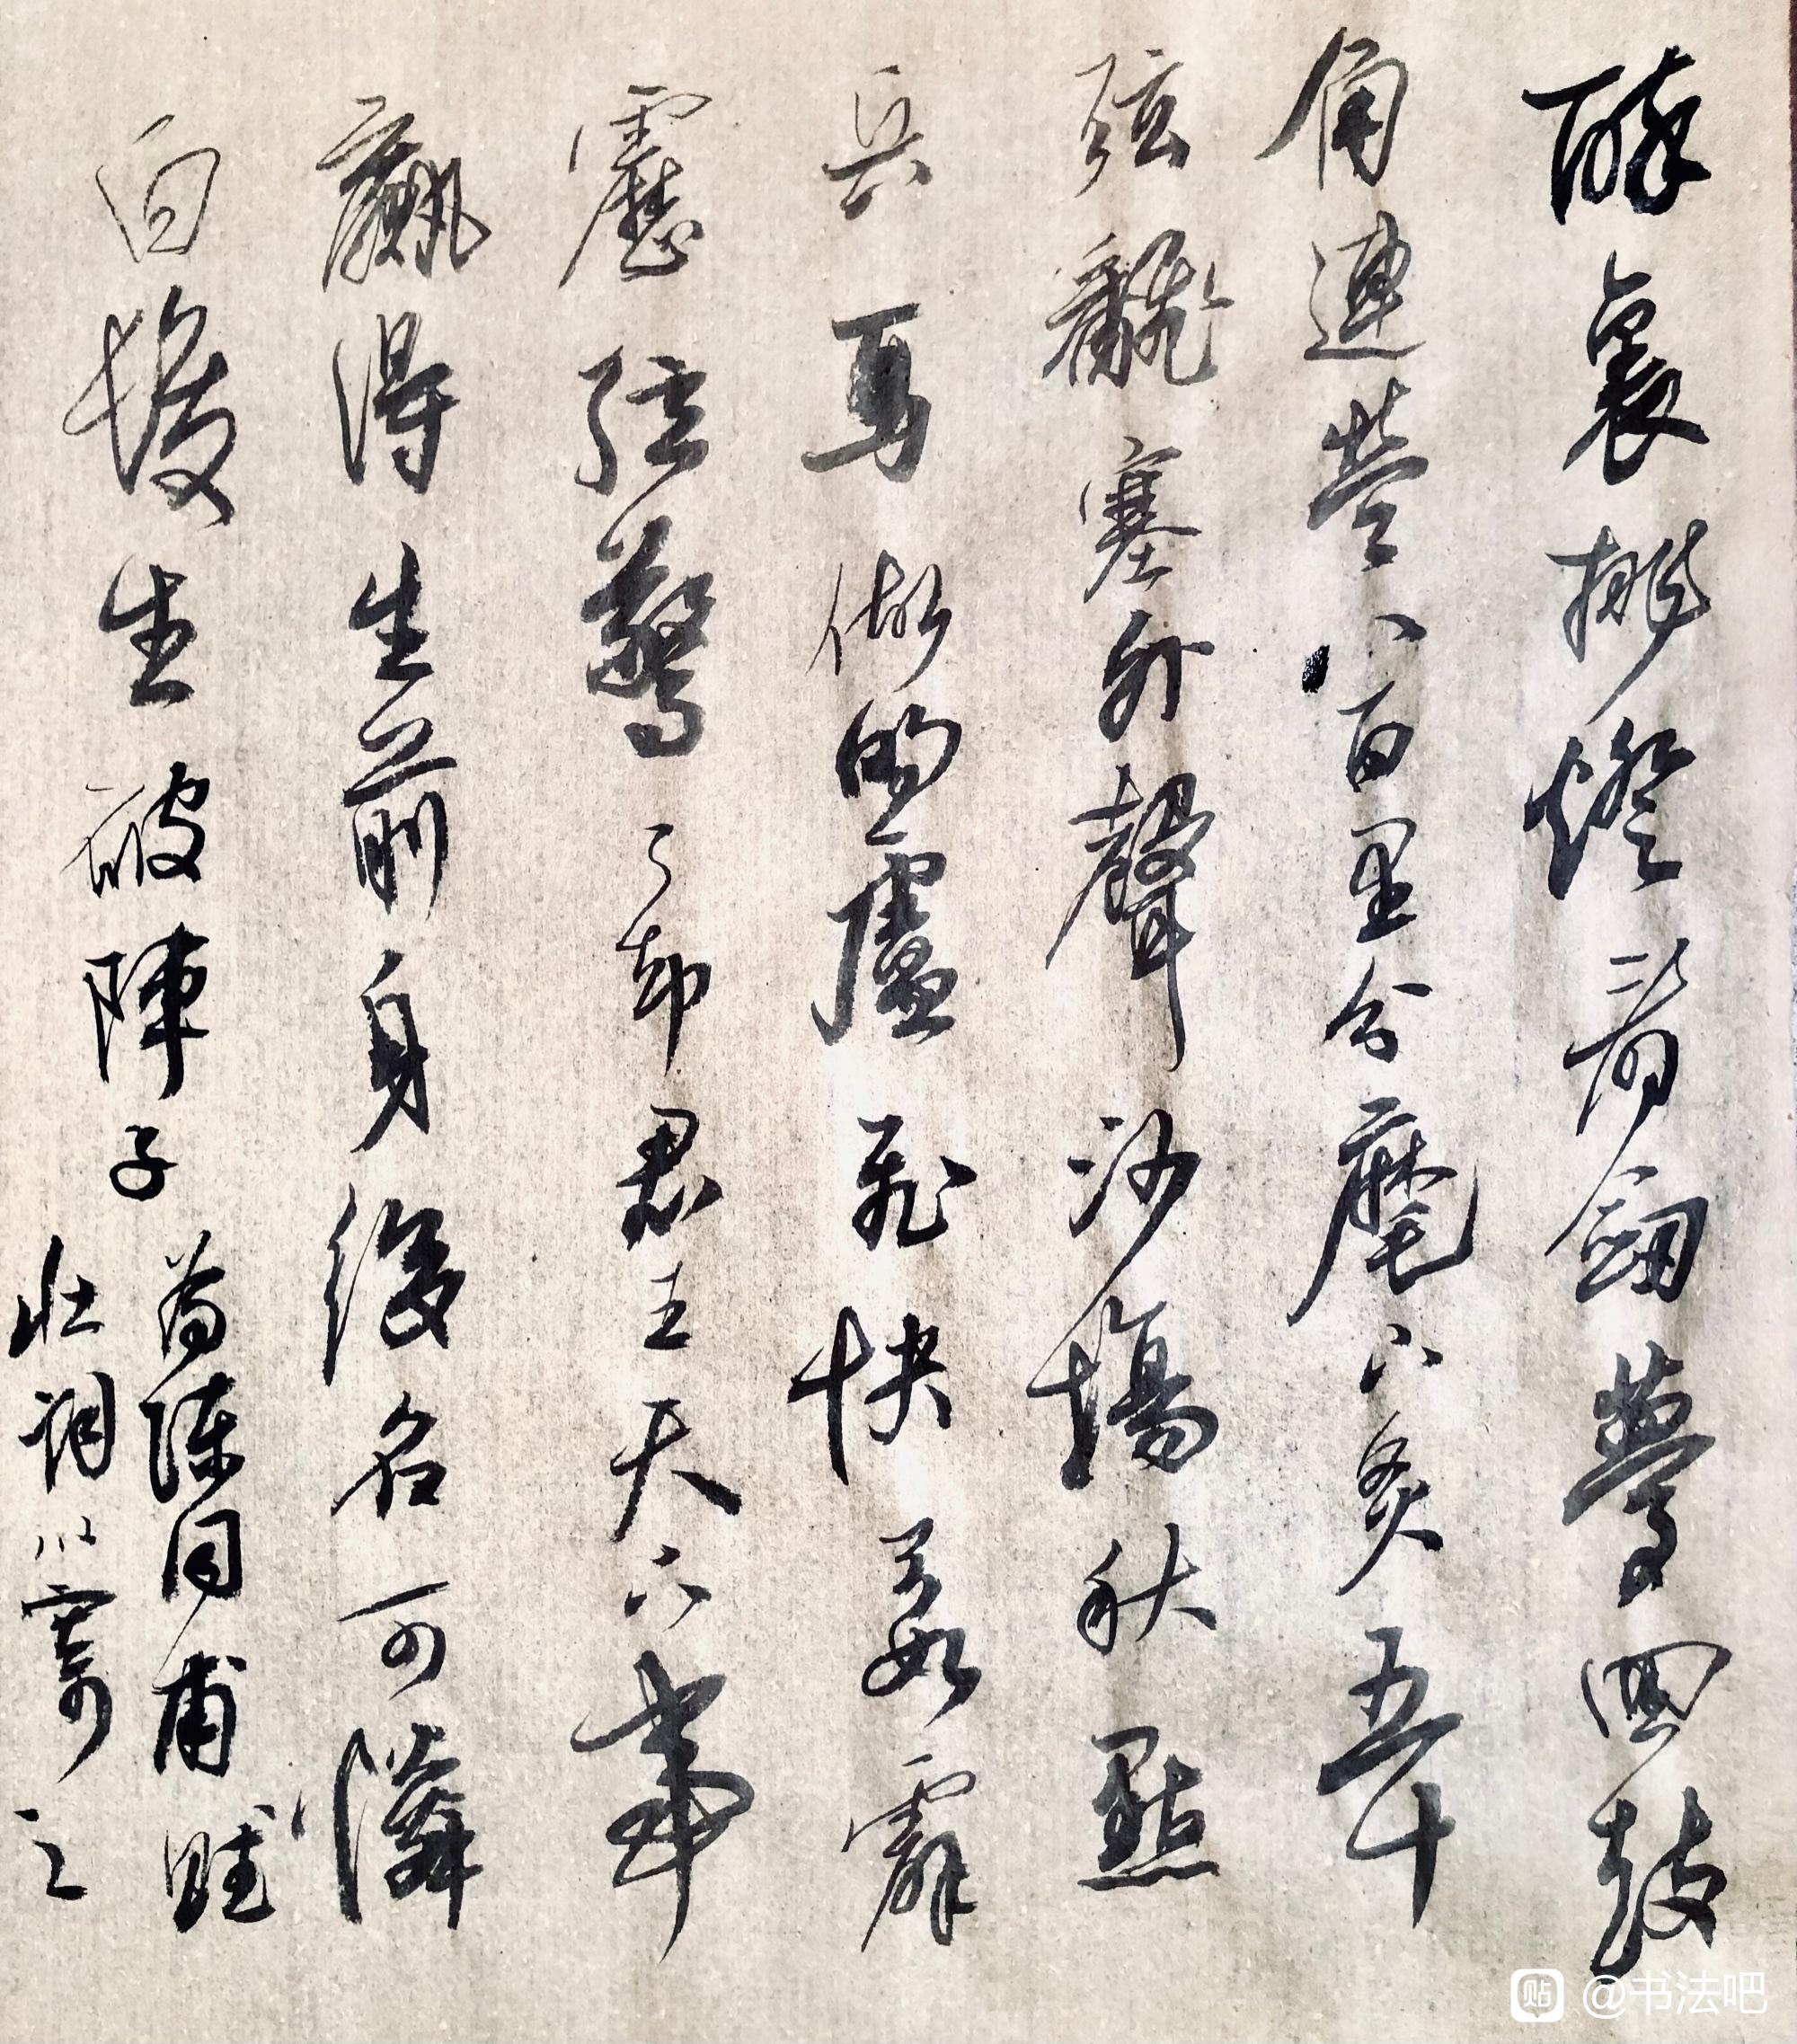 醉裏挑燈看劍夢回鼓
角連營八百里分麾下炙五十
弦翻塞外聲沙場秋點
兵馬作的盧飛快弓如霹
靂弦驚了却君王天下事
贏得生前身後名可憐
白髮生 破陣子
為陳同甫賦
壯詞以寄之
贴 @书法吧